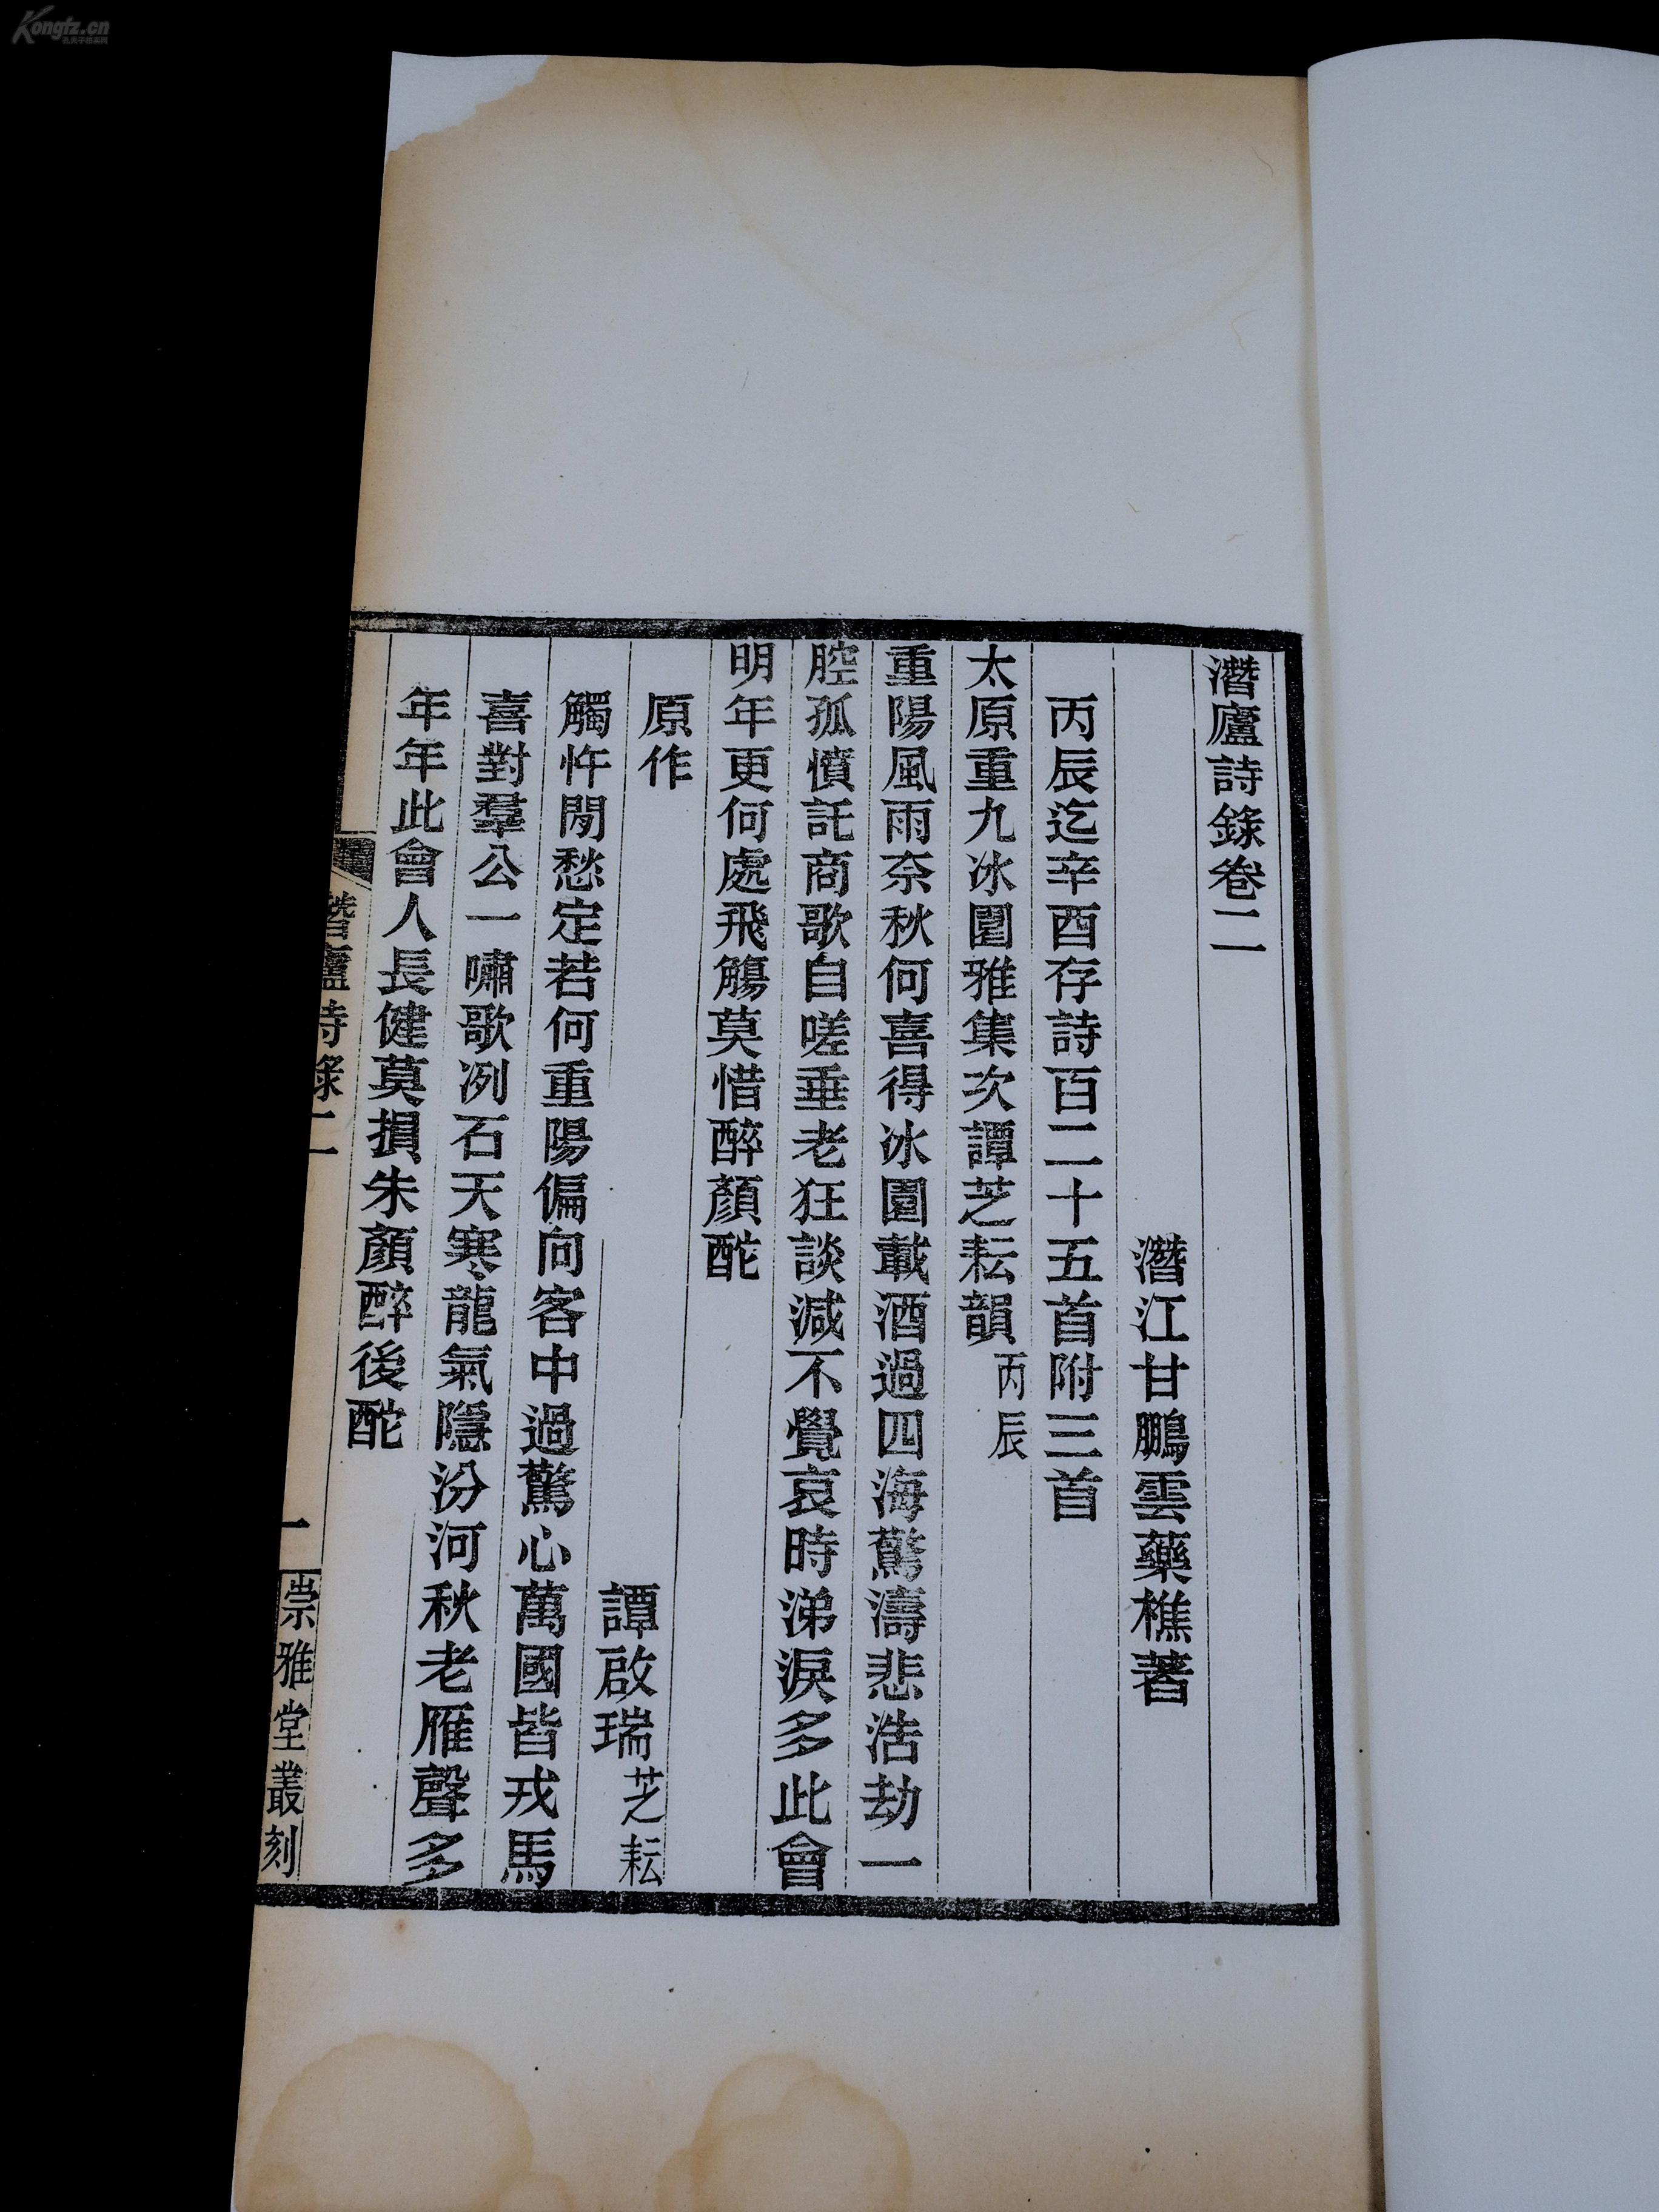 Kongfz.cn
孔夫子拍卖网
潛廬詩錄卷二
潛江甘鵬雲藥樵著
丙辰迄辛酉存詩百二十五首附三首
太原重九冰園雅集次譚芝耘韻丙辰
重陽風雨奈秋何喜得冰園載酒過四海驚濤悲浩劫一
腔孤憤託商歌自嗟垂老狂談減不覺哀時涕淚多此會
明年更何處飛觴莫惜醉顏酡
原作
譚啟瑞芝耘
觸忤閒愁定若何重陽偏向客中過驚心萬國皆戎馬
喜對羣公一嘯歌冽石天寒龍氣隱汾河秋老雁聲多
年年此會人長健莫損朱顏醉後酡
潛廬詩錄二
一
崇雅堂叢刻